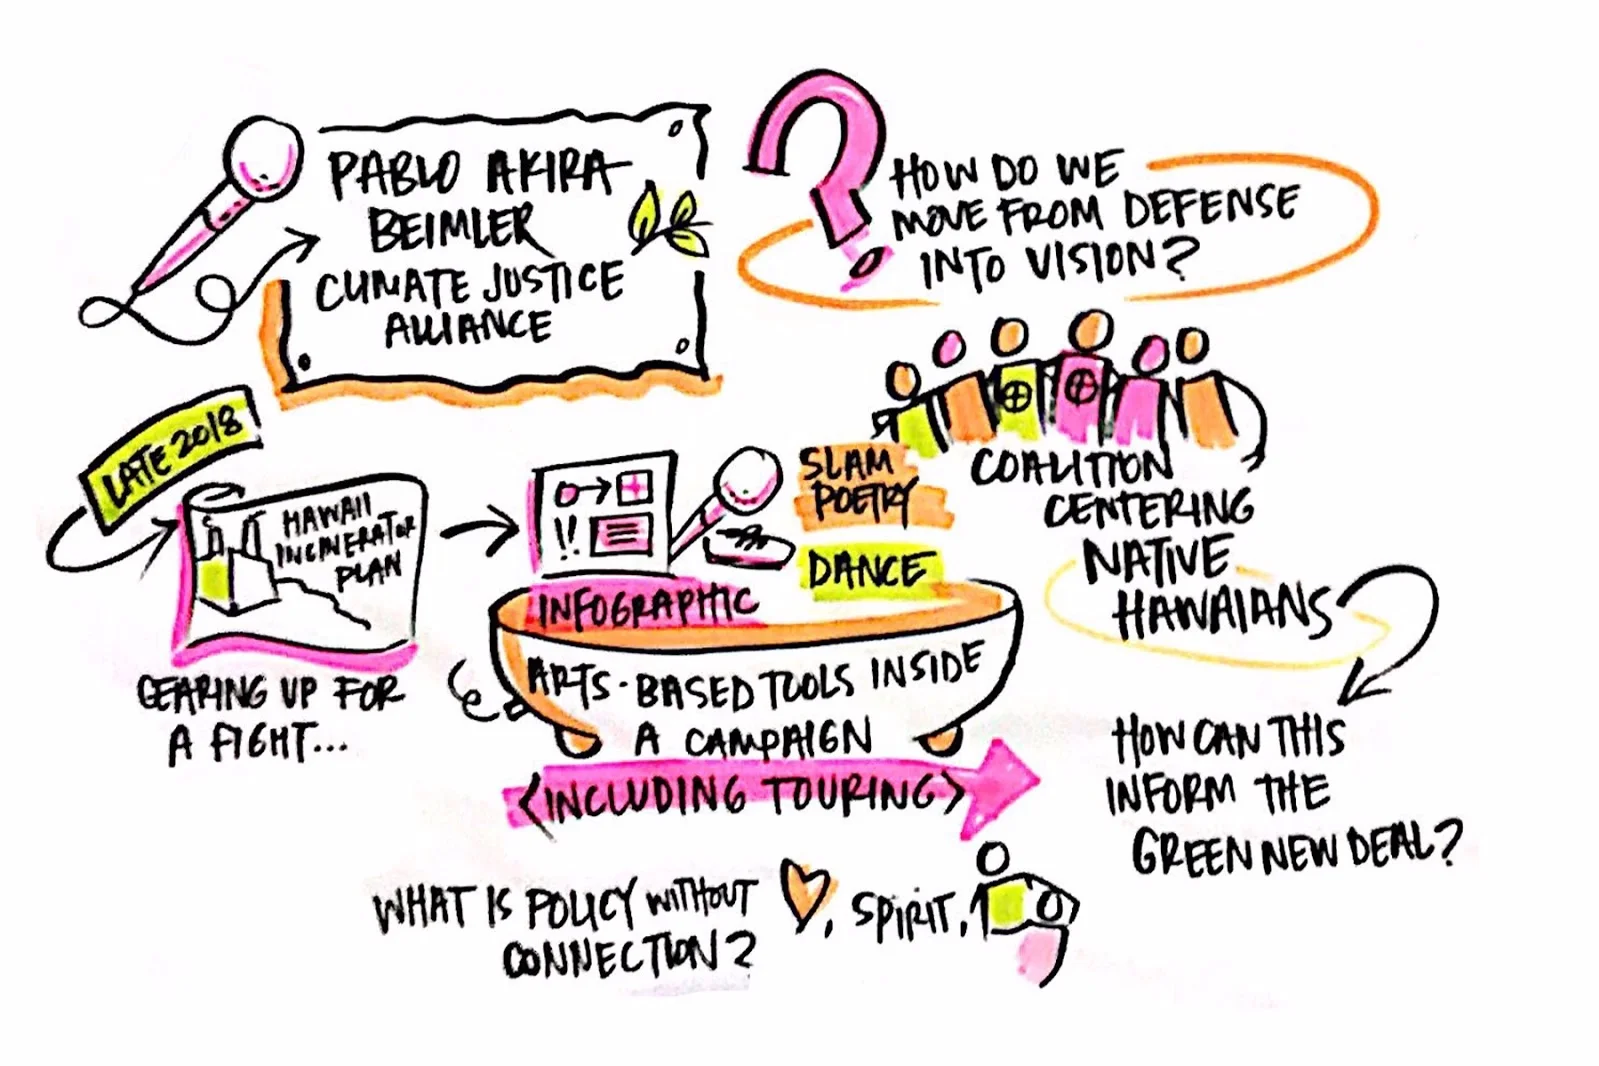 PABLO AKIRA
BEIMLER
CLIMATE JUSTICE
ALLIANCE
HOW DO WE
MOVE FROM DEFENSE
INTO VISION?
LATE 2018
HAWAII
INCINERATOR
PLAN
GEARING UP FOR
A FIGHT...
!!
SLAM
POETRY
DANCE
INFOGRAPHIC
ARTS-BASED TOOLS INSIDE
A CAMPAIGN
<INCLUDING TOURING>
COALITION
CENTERING
NATIVE
HAWAIANS
HOW CAN THIS
INFORM THE
GREEN NEW DEAL?
WHAT IS POLICY WITHOUT , SPIRIT,
CONNECTION?